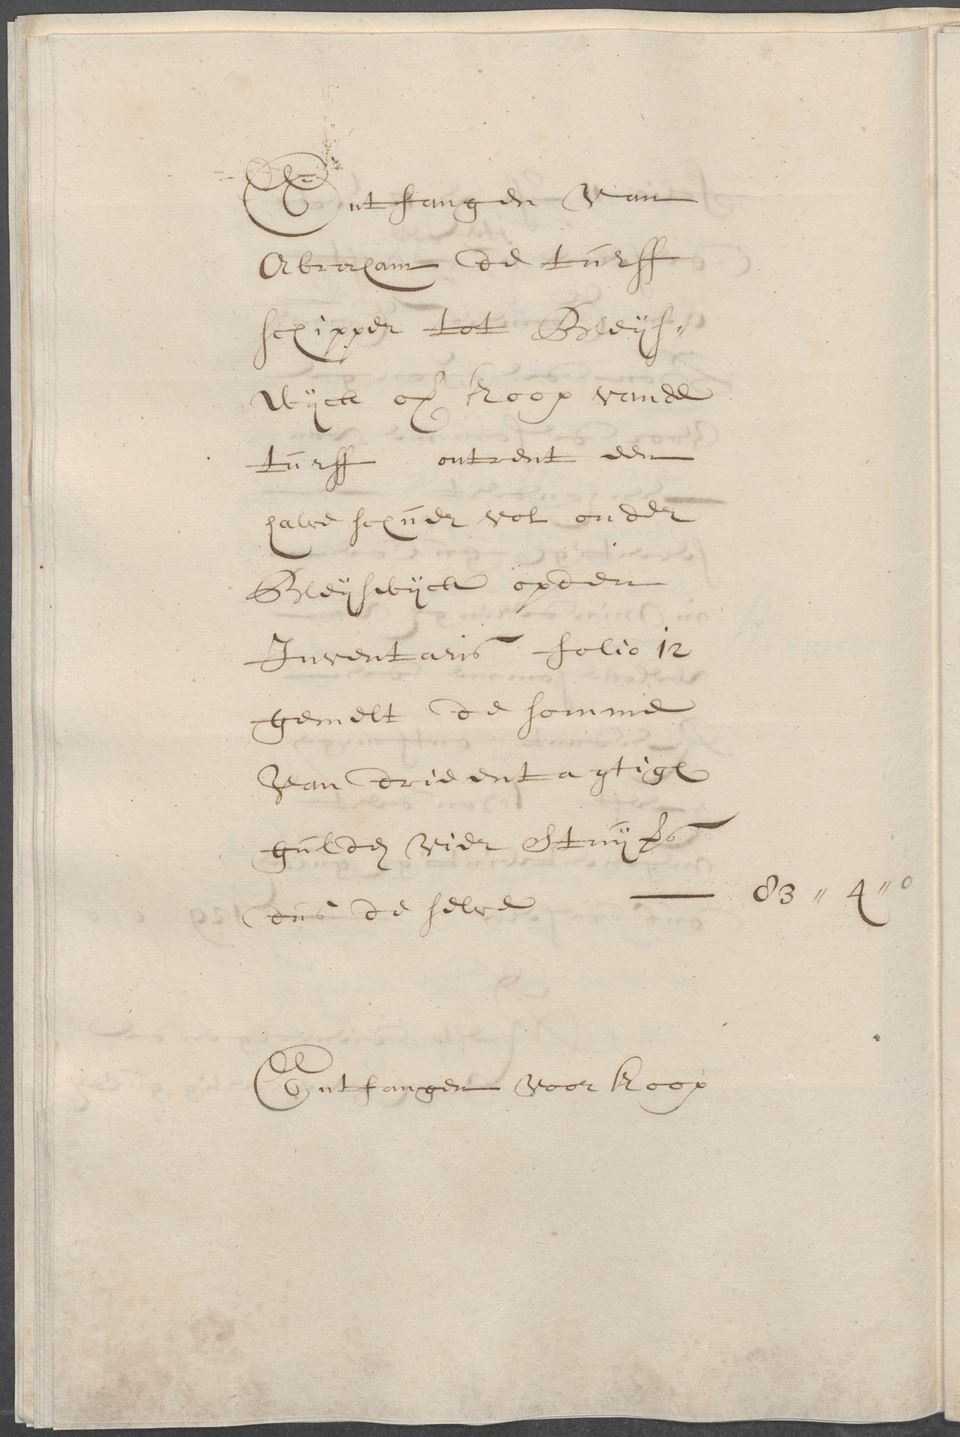 Ontfangen van
Abraham de turff
schipper tot Bleijs,,
wijck over koop vande
turff ontrent een
halve schuer vol onder
Bleijswijck opden
Inventaris folio 12
gemelt de somme
van drie entagtigh
gulden vier stuijvers
dus de selve — 83 ,, 4 ,, 0
Ontfangen voor koop